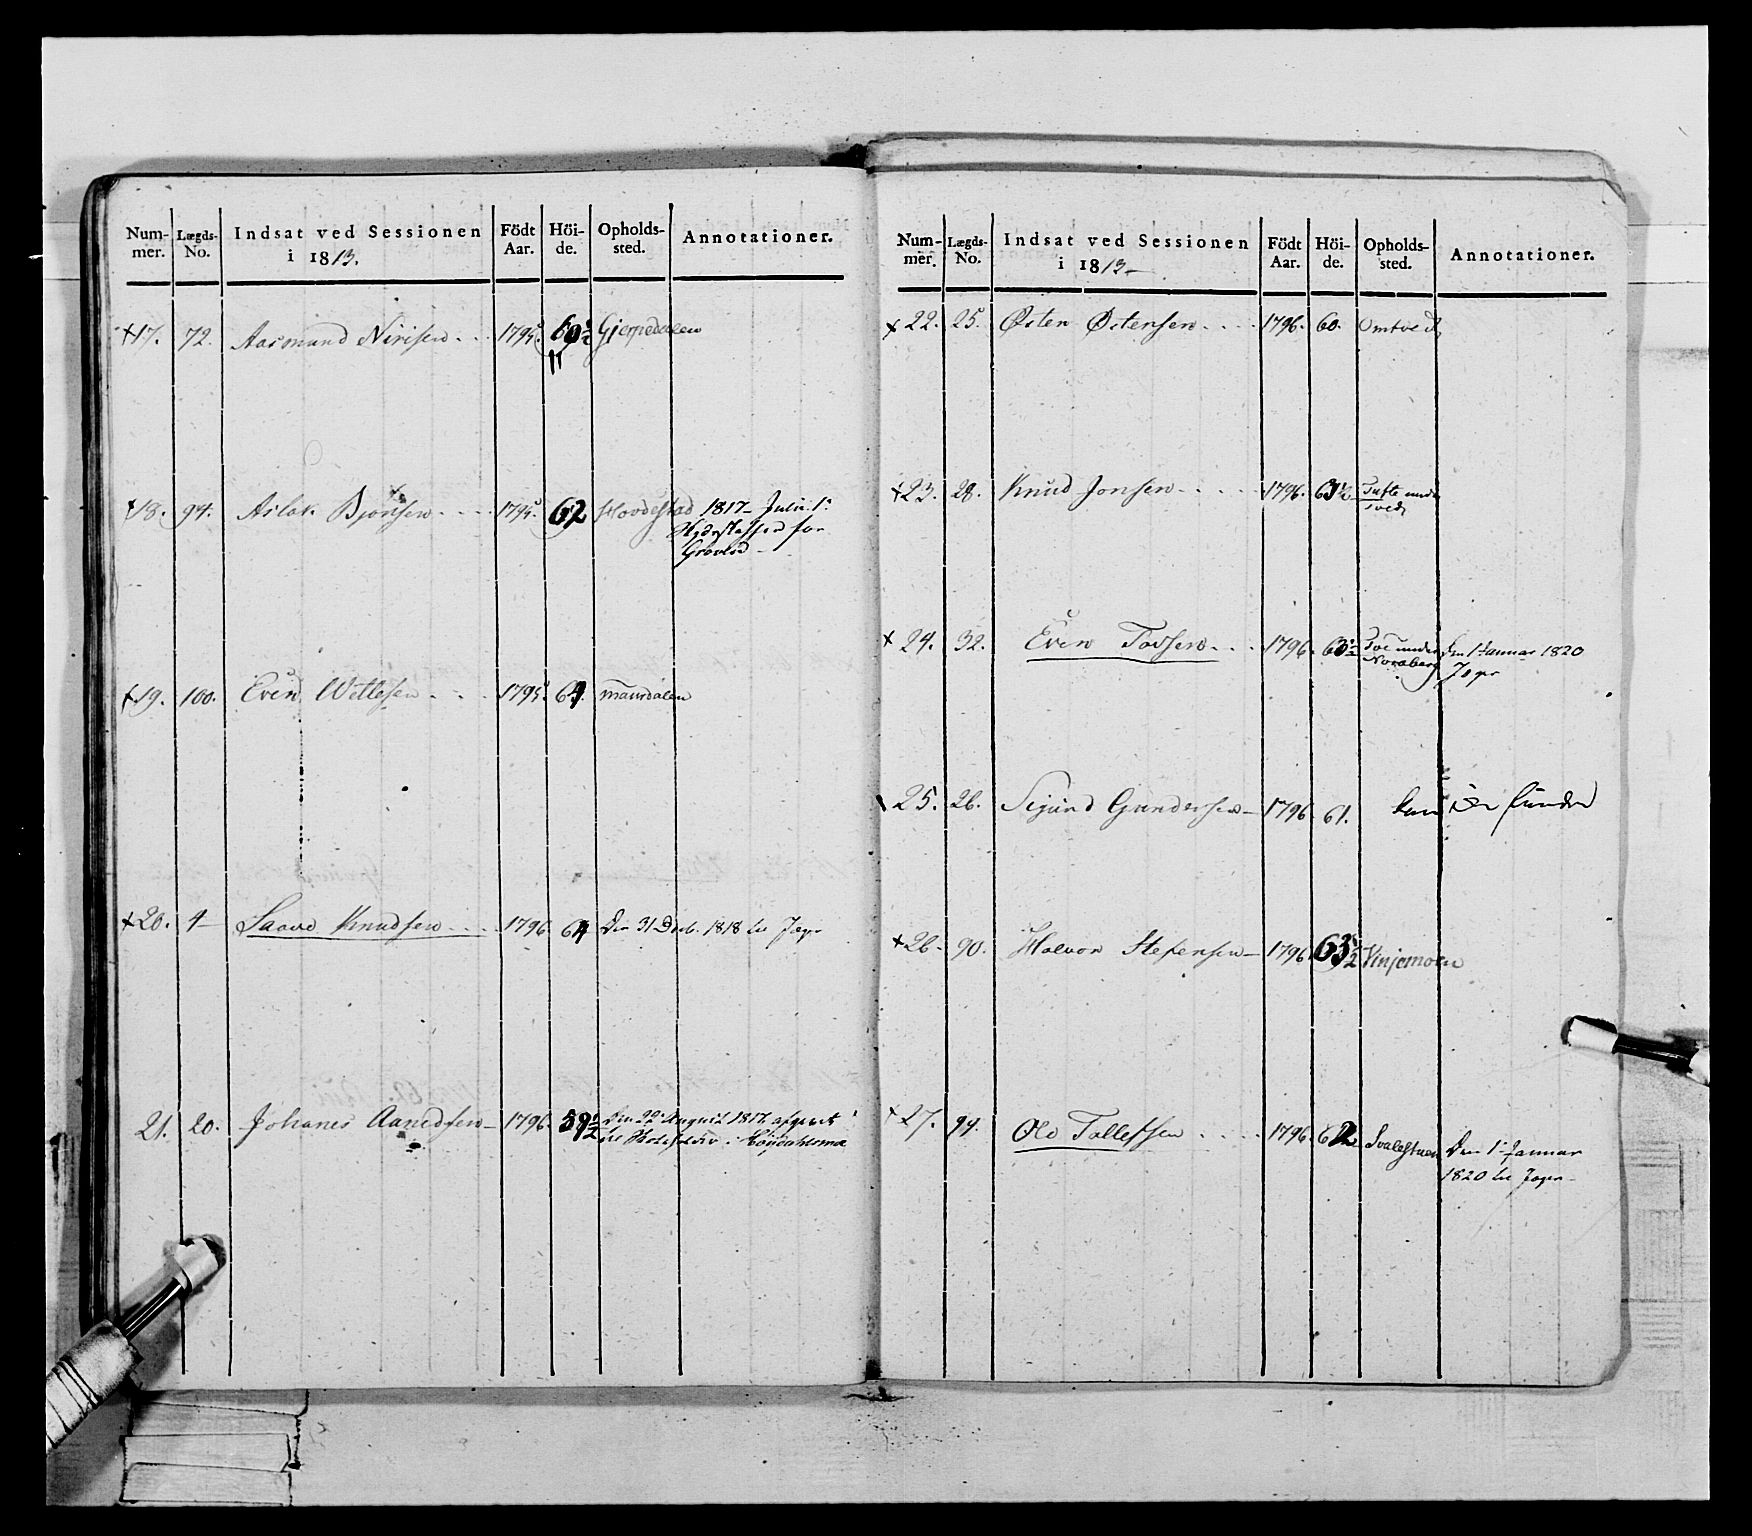 Num-mer. Lægds-No. Indsat ved Sessionen i 1813. Födt Aar. Höi-de. Opholds-sted. Annotationer.
17. 72. Aasmund Nirisen 1795. 60½ Gjerpedalen
11
18. 94. Aslak Bjørnsen 1795. 62 Hovdestad 1817 Julii 1
for
19. 100. Even Wetlesen 1795. 64 Maurdalen
20. 4 Saave Knudsen 1796. 64 Den 31 Decb. 1818 til Jæger
21. 20. Johanes Aanedsen 1796. 59½ den 22 August 1817 afgivet
til
Num-mer. Lægds-No. Indsat ved Sessionen i 1813 Födt Aar. Höi-de. Opholds-sted. Annotationer.
22. 25. Østen Østensen 1796. 60. Omtvedt
23. 28. Knud Jonsen 1796. 63½ Tufte under
Tvedt
24. 32. Even Tovsen 1796. 63½ Toe under Den 1 Januar 1820
Noraberg Jæger
25. 26. Sigurd Gundersen 1796 61. kan
26. 90. Halvor Stefensen 1796 63½ Vinjemoen
27. 94. Ole Tollefsen 1796. 62 Svalestuen Den 1 Januar
1820 til Jæger